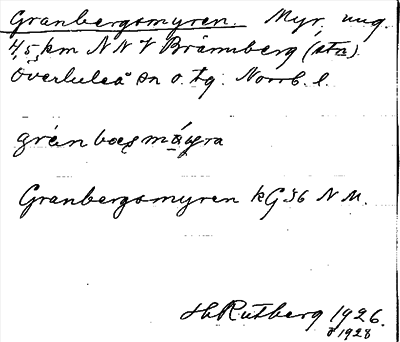 Granbergsmyren. Myr, ung.
4,5 km NNV Brännberg (sta)
Överluleå sn o. tg. Norrb. l.
Granbergsmyren kG36 NM.
H. Rutberg 1926.
o 1928